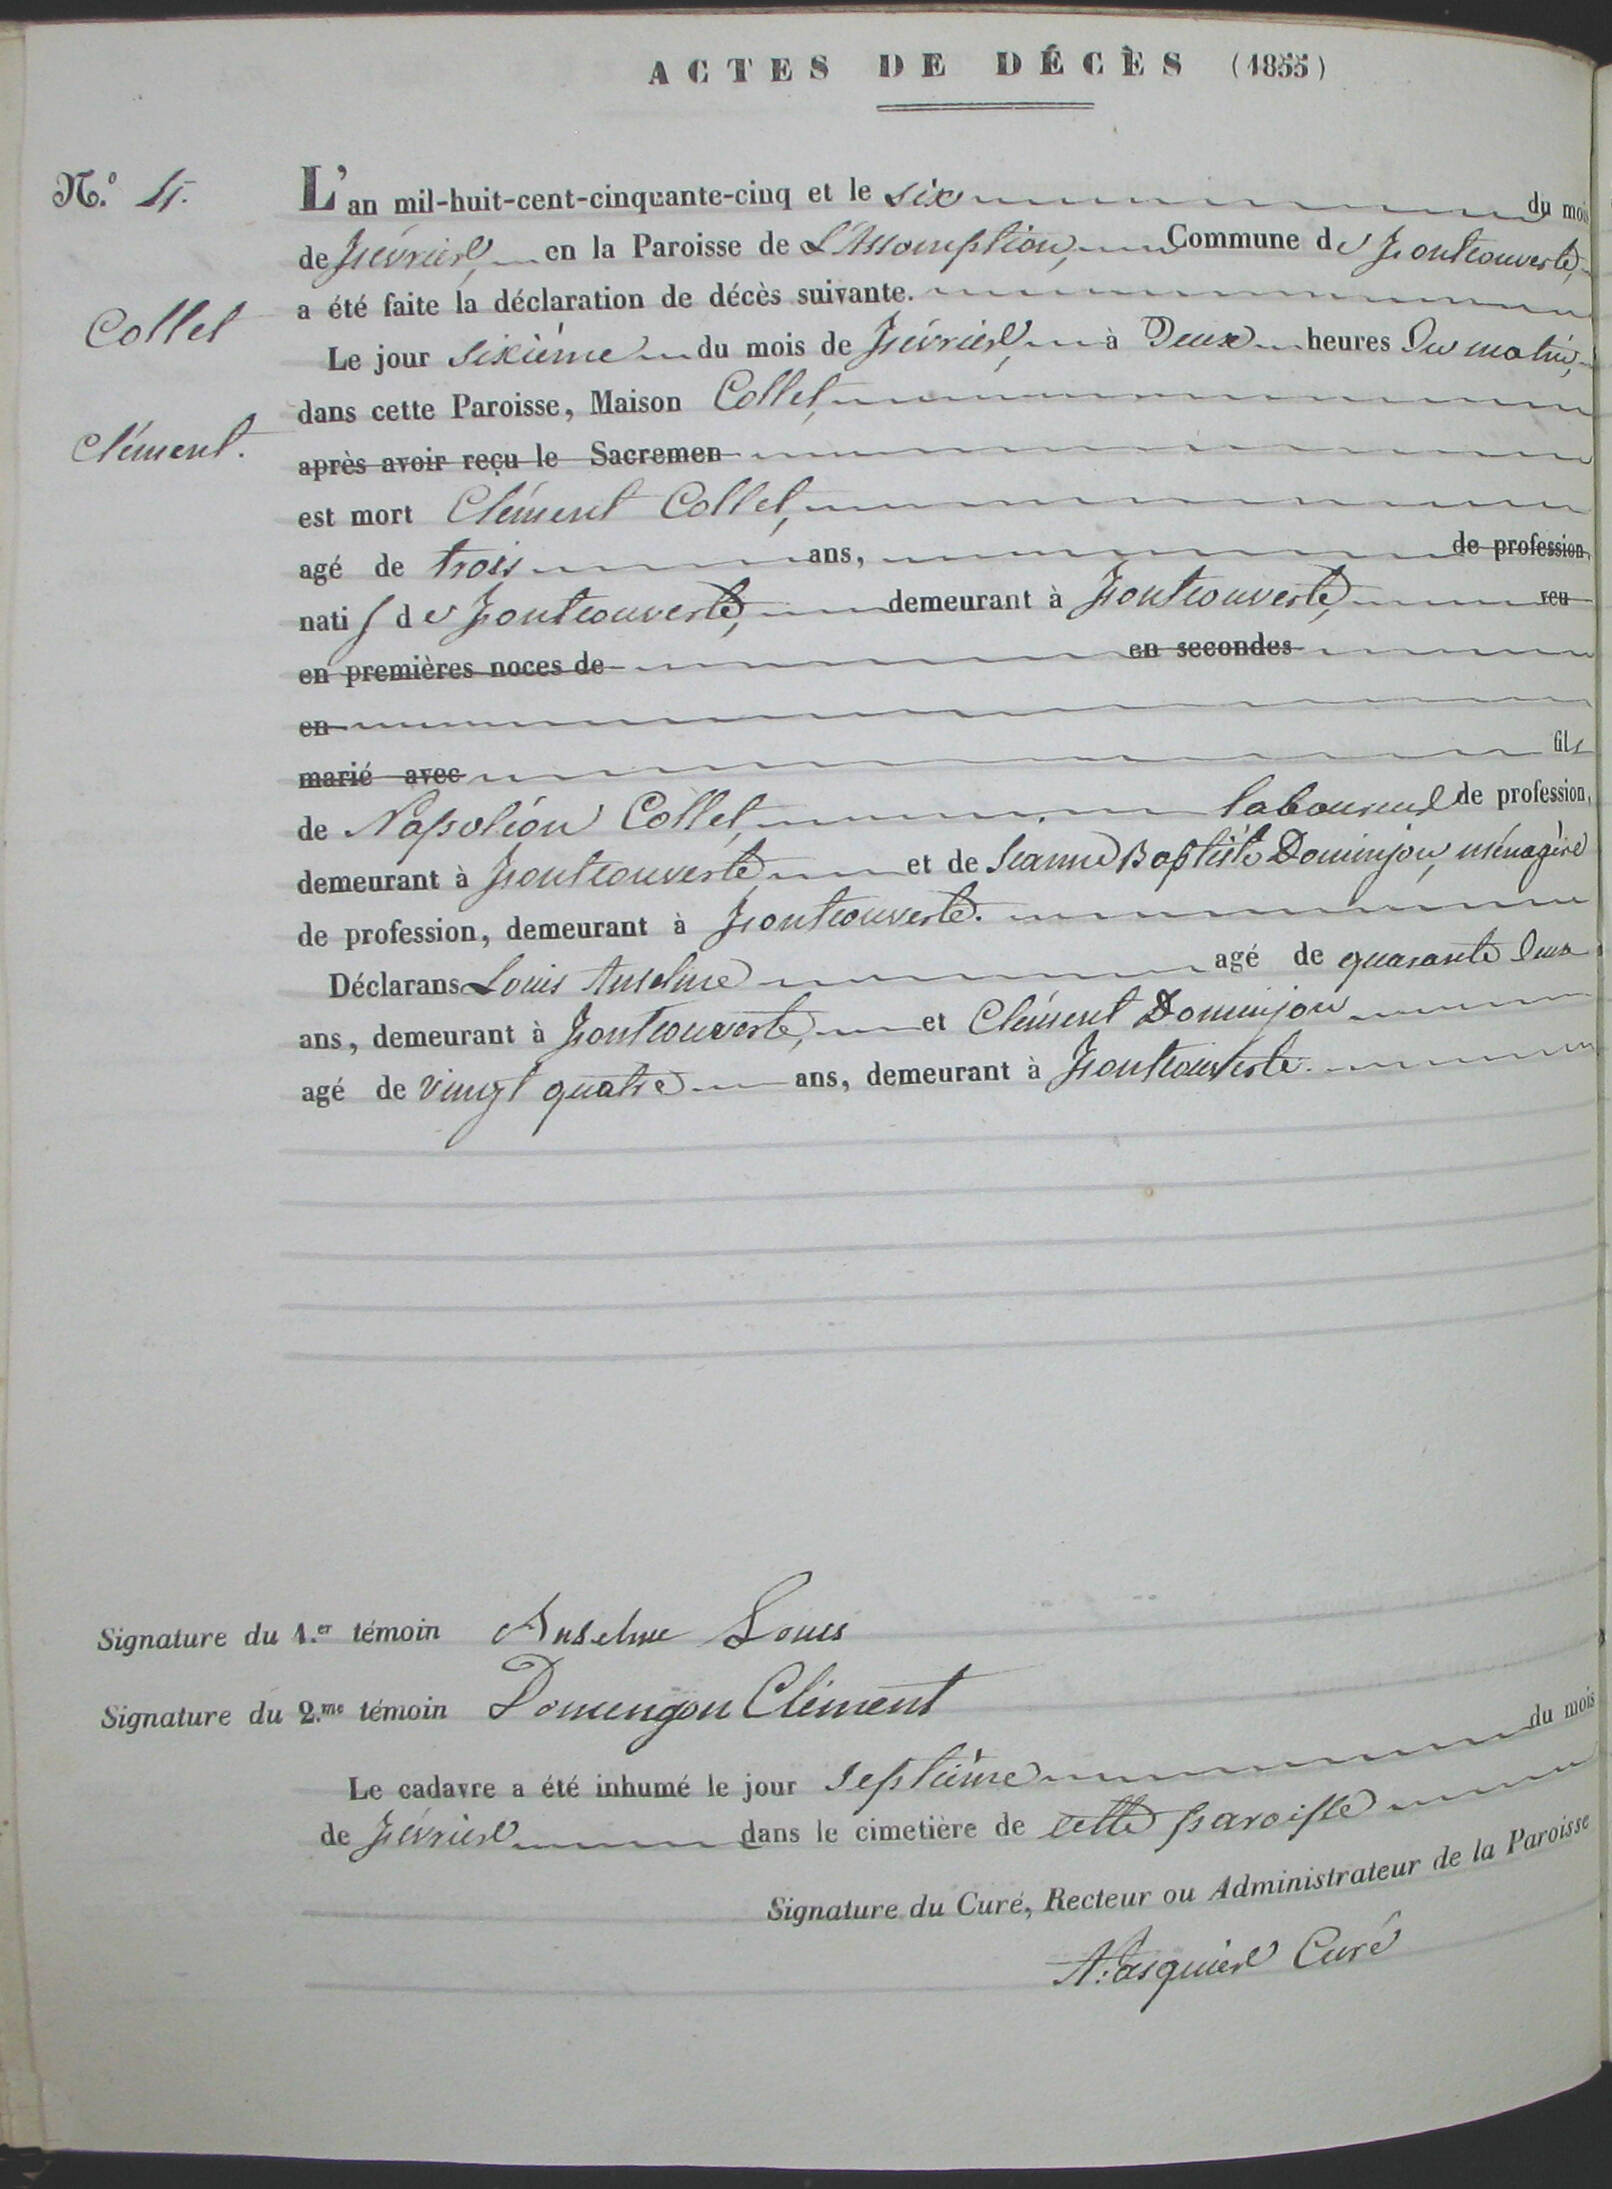 ACTES DE DÉCÈS (1855)
N.º 4.
Collet
Clément.
L'an mil-huit-cent-cinquante-cinq et le six du mois
de Février, en la Paroisse de L'Assomption, Commune de Fontcouverte,
a été faite la déclaration de décès suivante.
Le jour sixième du mois de Février, à Deux heures Du matin,
dans cette Paroisse, Maison Collet,
après avoir reçu le Sacremen
est mort Clément Collet,
agé de trois ans, de profession,
natif de Fontcouverte, demeurant à Fontcouverte, veu
en premières noces de en secondes
en
marié avec fils
de Napoléon Collet, laboureur de profession,
demeurant à Fontcouverte et de Jeanne Baptiste Dominjon, ménagère
de profession, demeurant à Fontcouverte.
Déclarans Louis Anselme agé de quarante deux
ans, demeurant à Fontcouverte, et Clément Dominjon
agé de vingt quatre ans, demeurant à Fontcouverte.
Signature du 1.er témoin Anselme Louis
Signature du 2.me témoin Domengon Clément
Le cadavre a été inhumé le jour septième du mois
de Février dans le cimetière de cette paroisse
Signature du Curé, Recteur ou Administrateur de la Paroisse
Curé